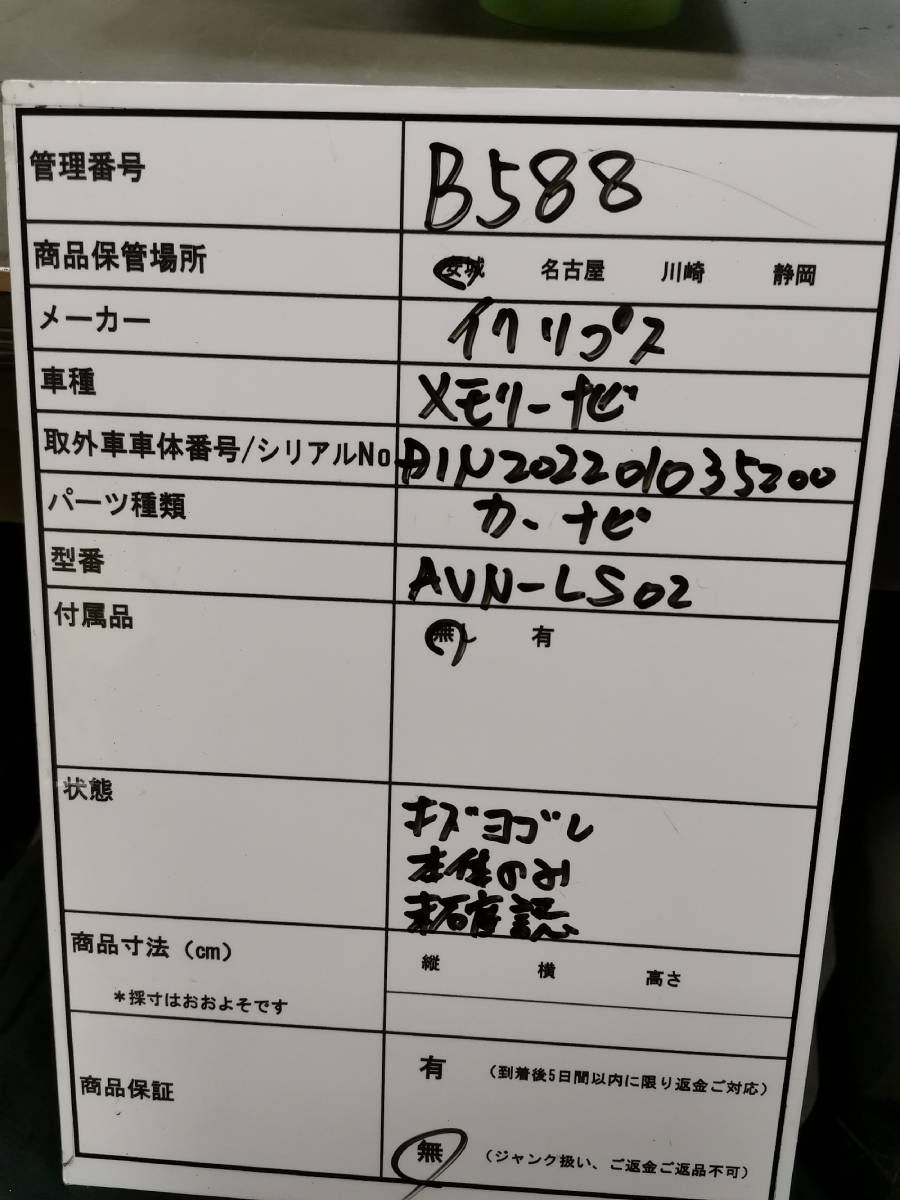 管理番号 B588
商品保管場所 安城 名古屋 川崎 静岡
メーカー イクリプス
車種 メモリーナビ
取外車車体番号/シリアルNo DIN202201035200
パーツ種類 カーナビ
型番 AVN-LS02
付属品 無 有
状態 キズヨゴレ
本体のみ
未確認
商品寸法（cm） 縦 横 高さ
＊採寸はおおよそです
商品保証 有 （到着後5日間以内に限り返金ご対応）
無 （ジャンク扱い、ご返金ご返品不可）